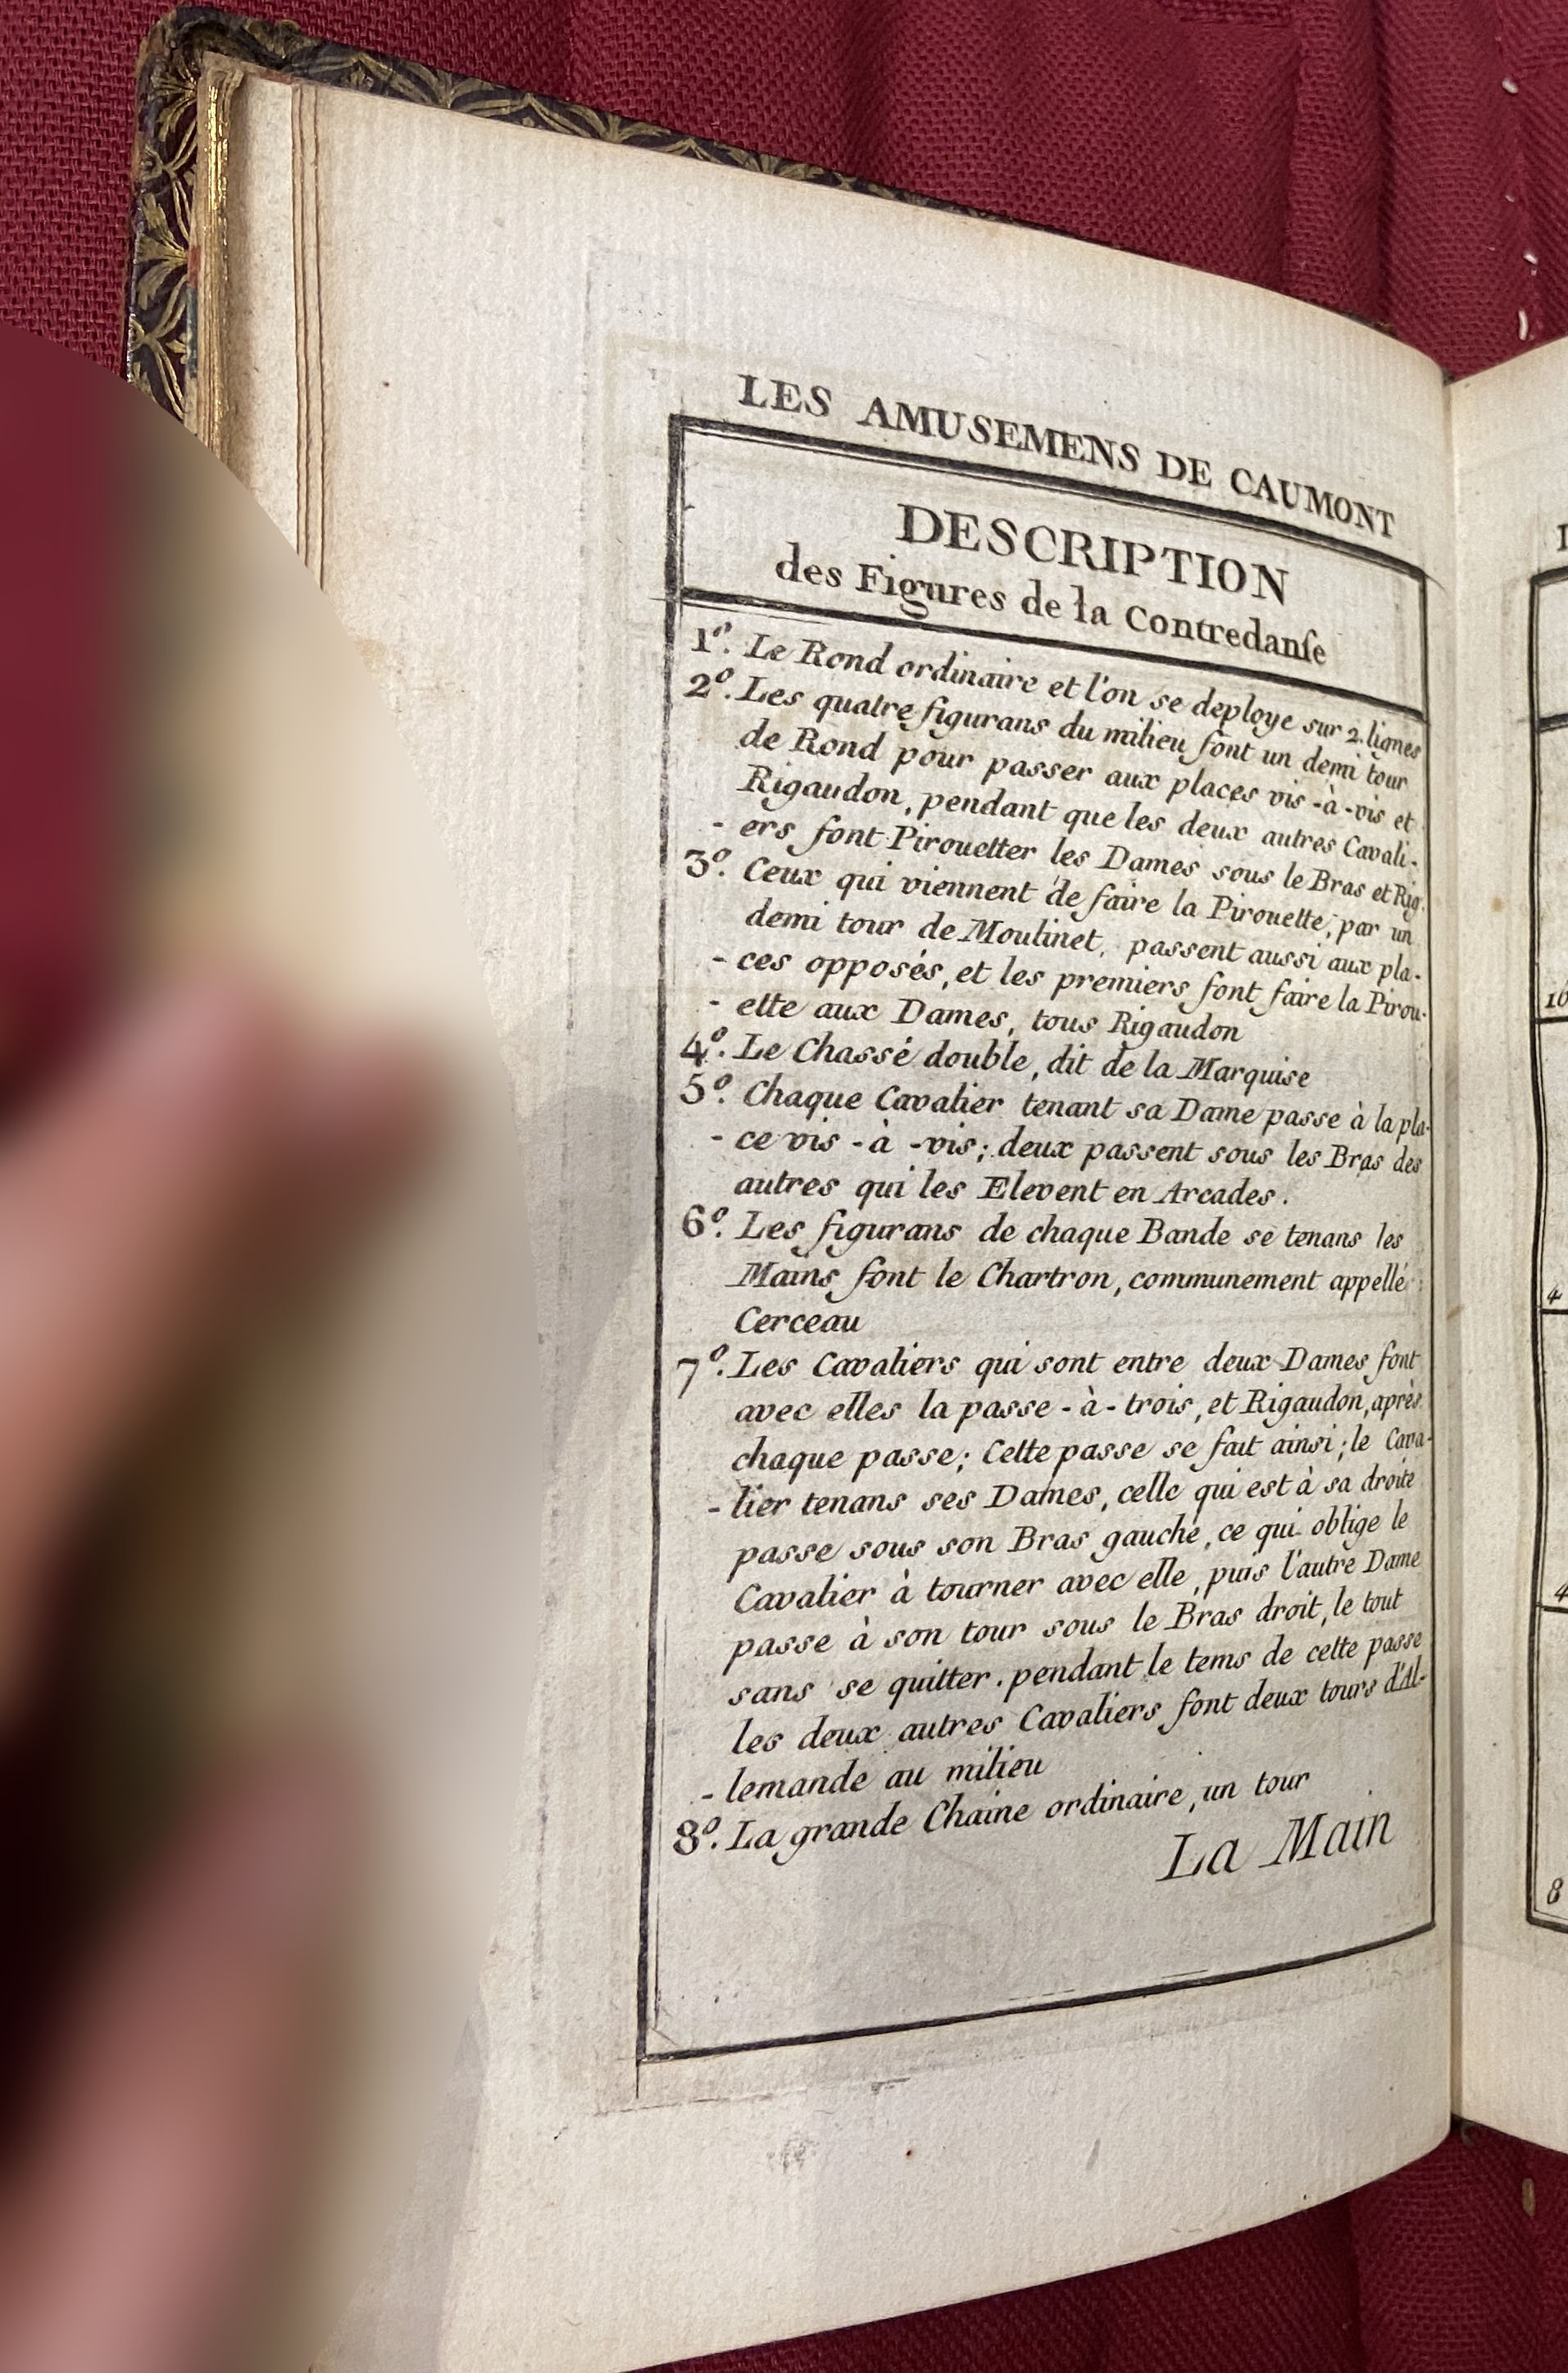 LES AMUSEMENS DE CAUMONT
DESCRIPTION
des Figures de la Contredanſe
1º. Le Rond ordinaire et l'on se deploye sur 2. lignes
2º. Les quatre figurans du milieu font un demi tour
de Rond pour passer aux places vis-à-vis et
Rigaudon, pendant que les deux autres Cavali-
- ers font Pirouetter les Dames sous le Bras et Rig.
3º. Ceux qui viennent de faire la Pirouette, par un
demi tour de Moulinet, passent aussi aux pla-
- ces opposés, et les premiers font faire la Pirou-
- ette aux Dames, tous Rigaudon
4º. Le Chassé double, dit de la Marquise
5º. Chaque Cavalier tenant sa Dame passe à la pla-
- ce vis-à-vis; deux passent sous les Bras des
autres qui les Elevent en Arcades.
6º. Les figurans de chaque Bande se tenans les
Mains font le Chartron, communement appellé
Cerceau
7º. Les Cavaliers qui sont entre deux Dames font
avec elles la passe-à-trois, et Rigaudon, après
chaque passe; Cette passe se fait ainsi; le Cava-
- lier tenans ses Dames, celle qui est à sa droite
passe sous son Bras gauche, ce qui oblige le
Cavalier à tourner avec elle, puis l'autre Dame
passe à son tour sous le Bras droit, le tout
sans se quitter. pendant le tems de cette passe
les deux autres Cavaliers font deux tours d'Al-
- lemande au milieu
8º. La grande Chaine ordinaire, un tour
La Main
4
4
8